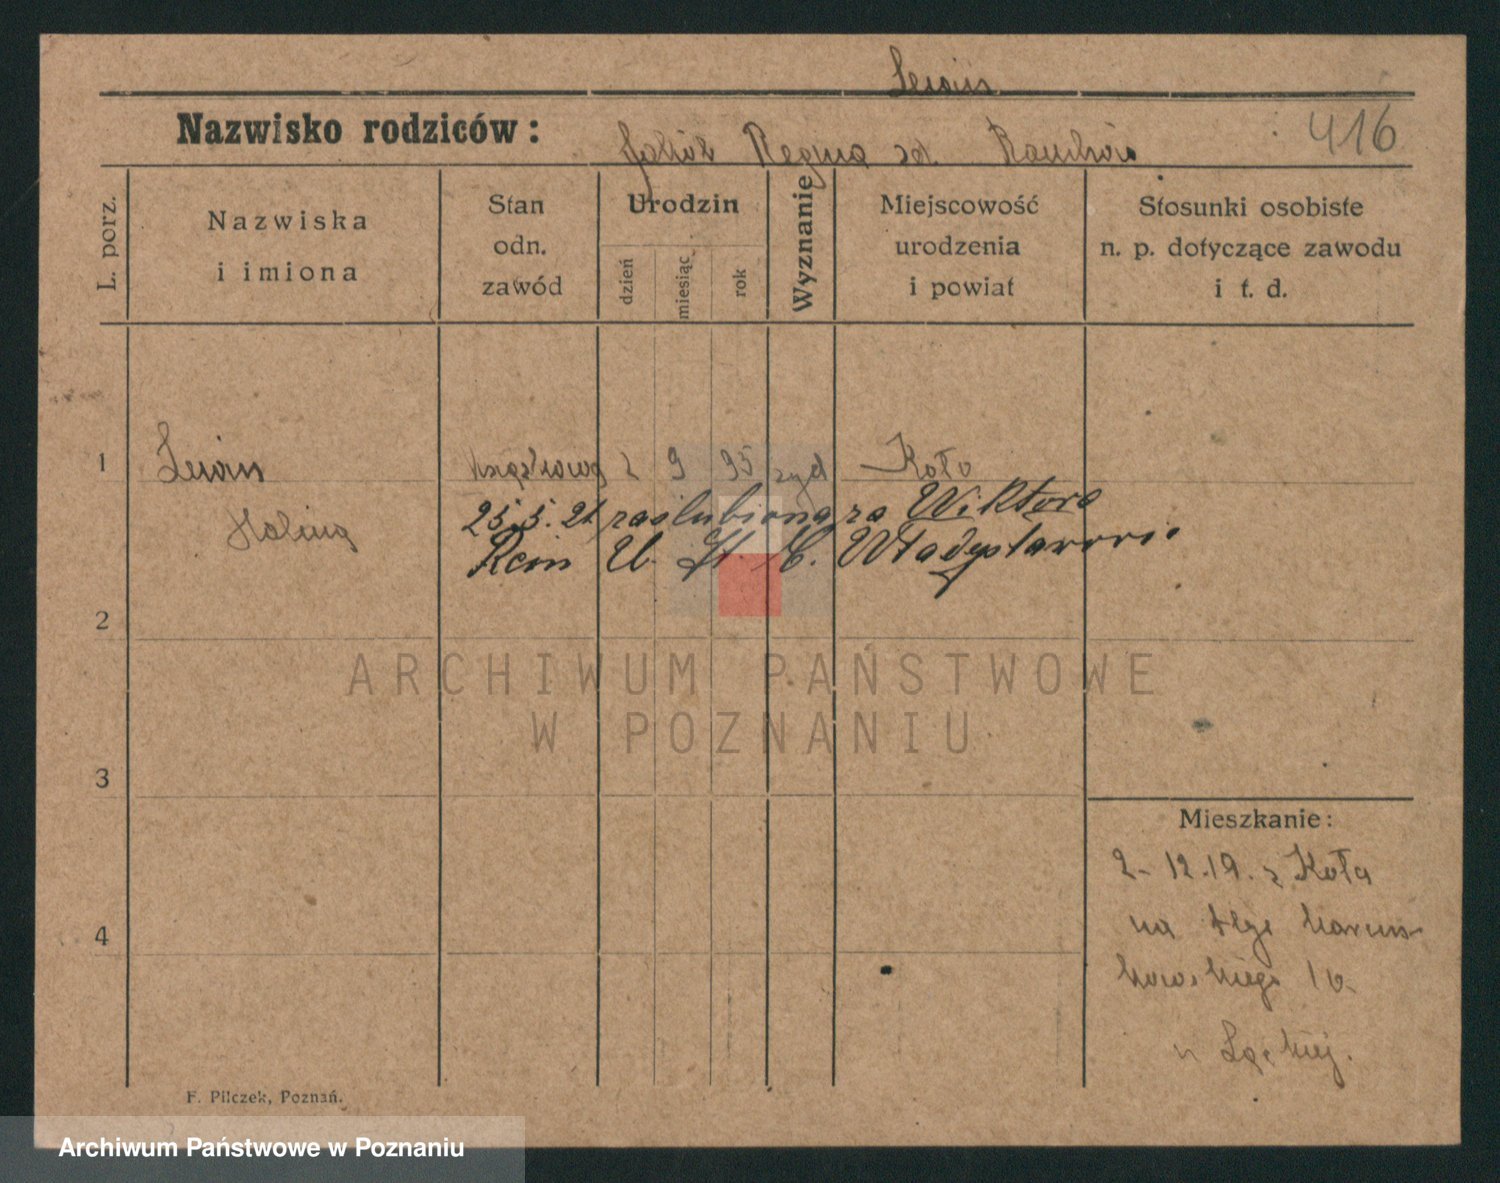 Lewin
Nazwisko rodziców: Jakób Regina zd.
416
L. porz.
Nazwiska
i imiona
Stan
odn.
zawód
Urodzin
dzień
miesiąc
rok
Wyznanie
Miejscowość
urodzenia
i powiat
Stosunki osobiste
n. p. dotyczące zawodu
i t. d.
1 Lewin 2 9 95 żyd Koło
25.5.21 zaślubiona za Wiktora
Halina
Rein U. St. C. Władysławowo
2
ARCHIWUM PAŃSTWOWE
W POZNANIU
3
Mieszkanie:
2-12.19. z Koła
na Alge Marcin-
kowskiego 10
u Łąckiej.
4
F. Pilczek, Poznań.
Archiwum Państwowe w Poznaniu